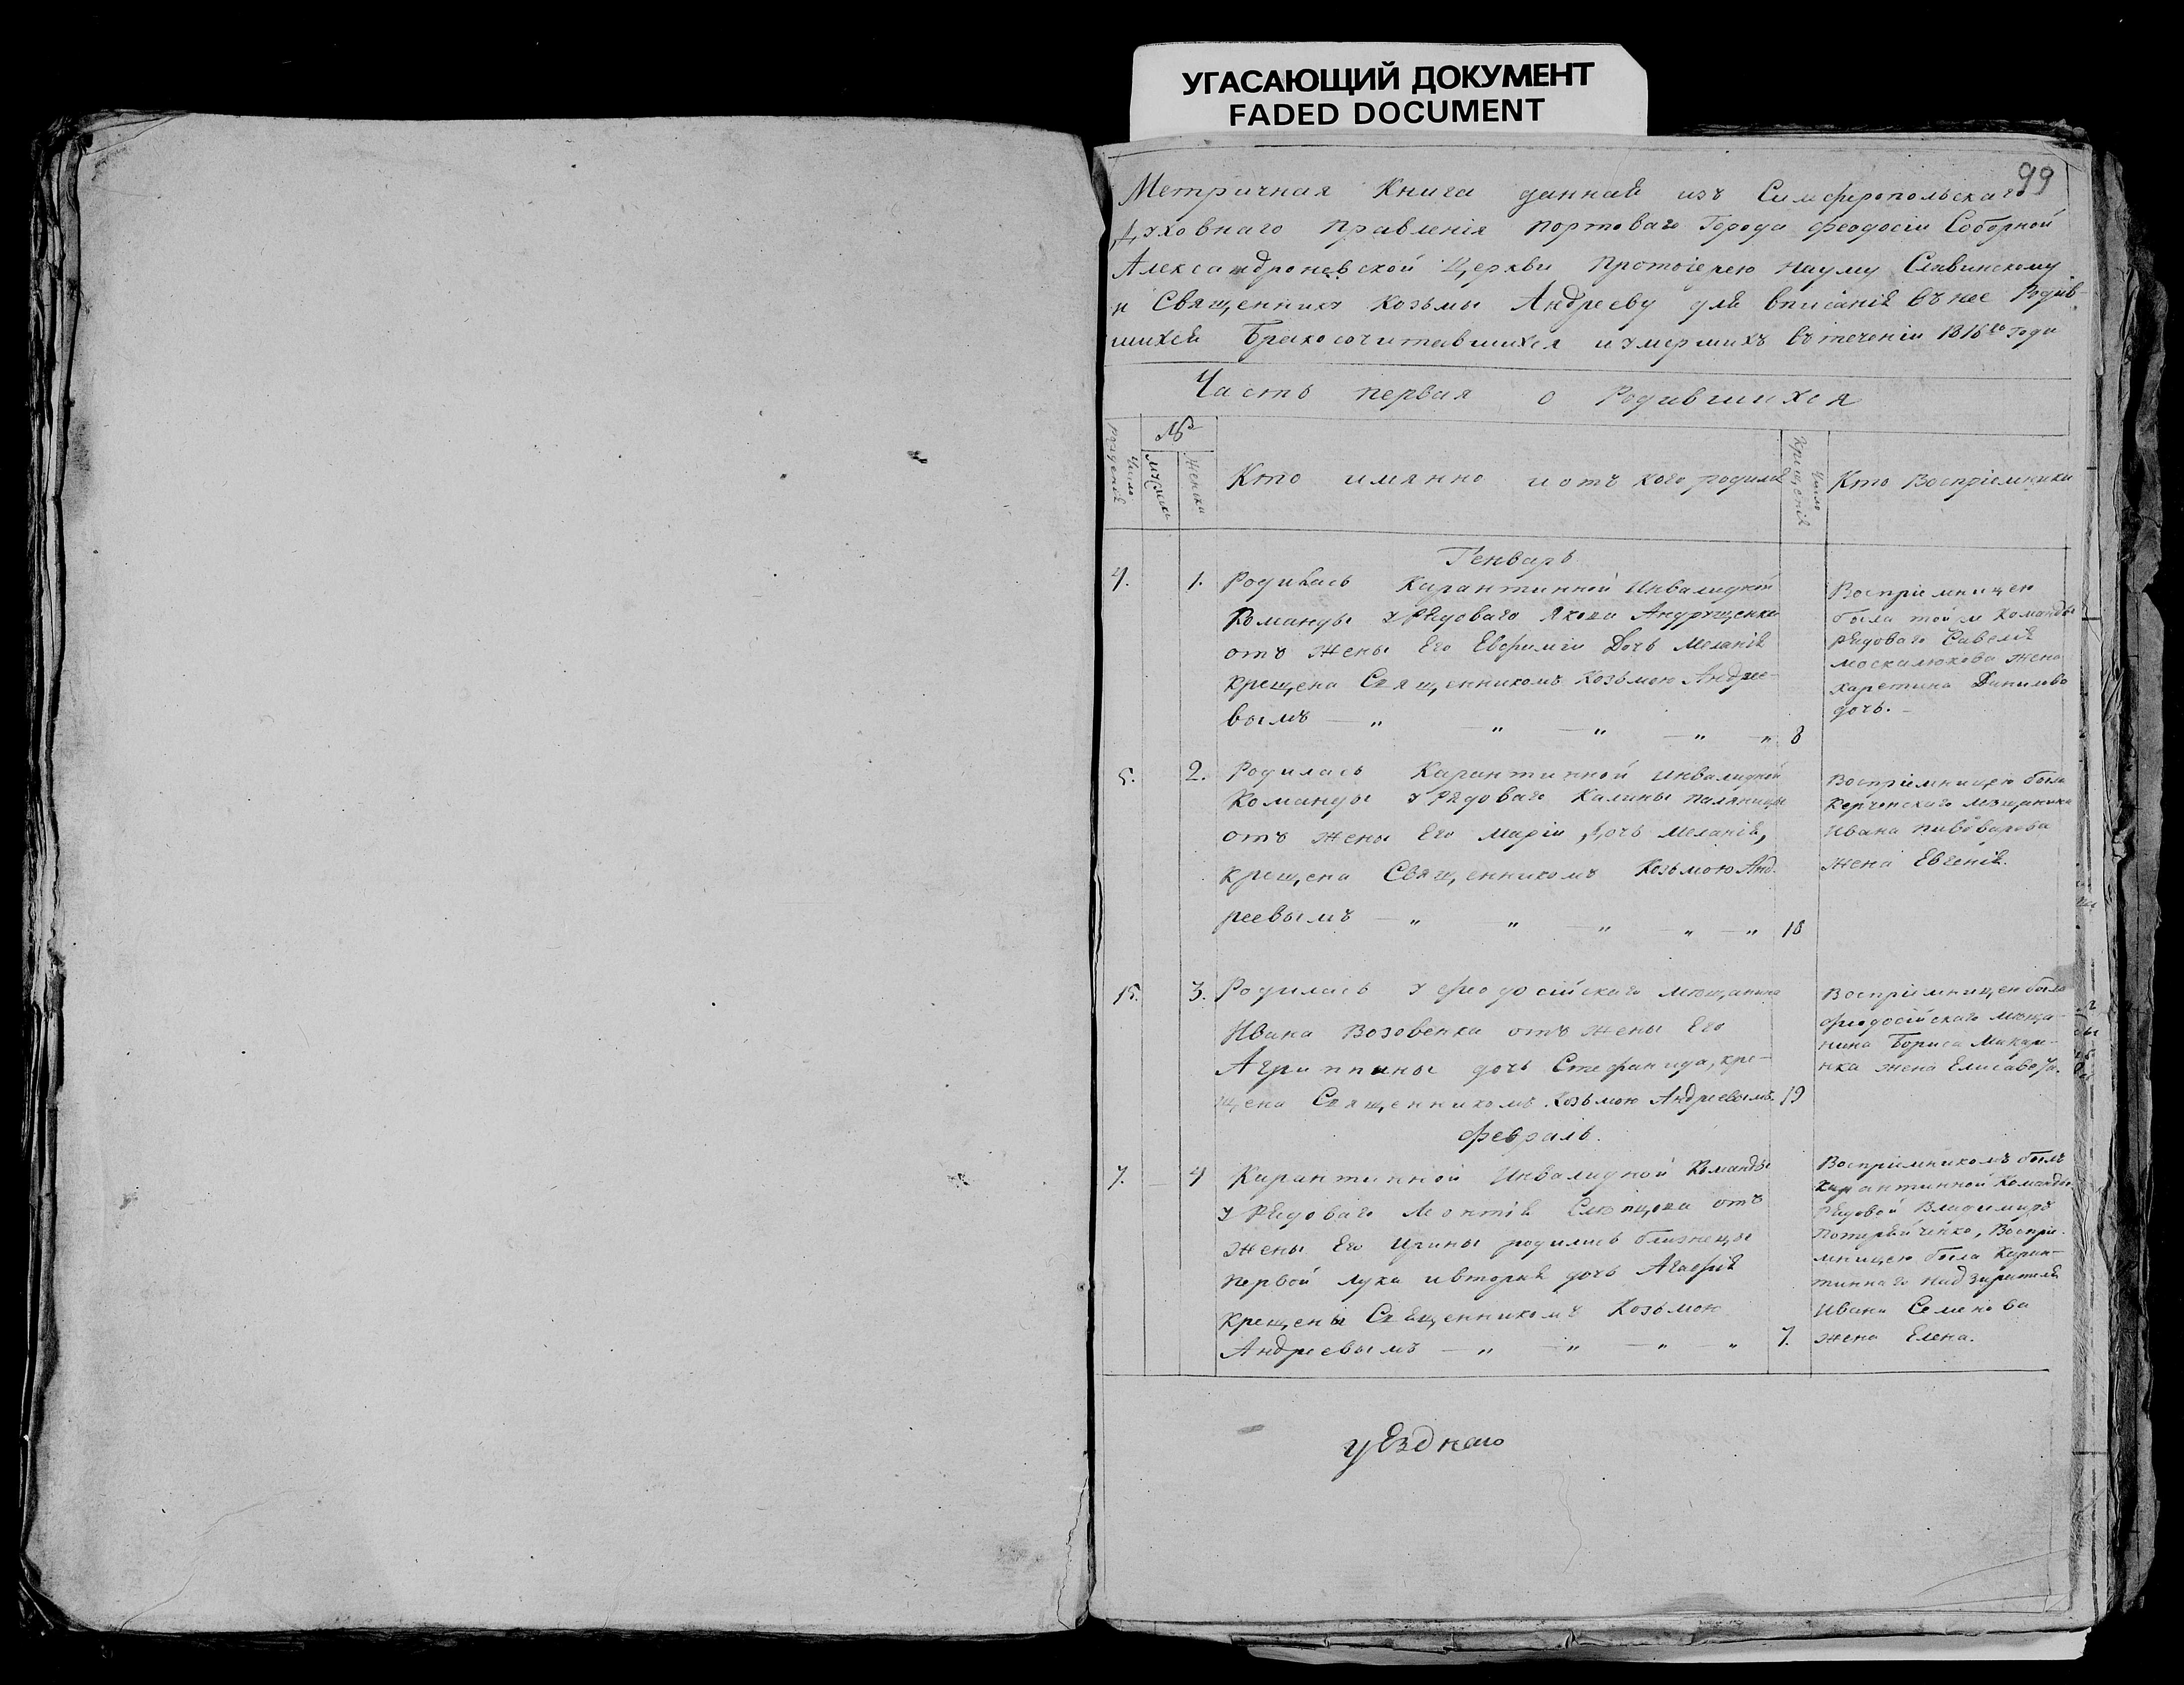 УГАСАЮЩИЙ ДОКУМЕНТ
FADED DOCUMENT
99
Метричная Книга данная изъ Симферопольскаго
Духовнаго Правленія портоваго Города Феодосіи Соборной
Александроневской Церкви Протоіерею Науму Славинскому
и Священнику Козьмы Андрееву для вписанія въ нее Родив-
шихся Бракосочитавшихся и умершихъ въ теченіи 1816го Года
Часть первая о Родившихся
Число рожденія
№
Мужска
Женска
Кто имянно и отъ кого родился
Число Крещенія
Кто Воспріемники
Генварь
4.
1.
Родилась Карантинной Инвалидной
Команды у Рядоваго Якова Андрущенка
отъ жены Его Евфиміи Дочь Меланія
крещена Священникомъ Козьмою Андрее-
вымъ — „ — „ — „ — „ — „
8
Воспріемницею
была той же Команды
рядоваго Савелія
москалюкова жена
Харетина Данилова
дочь. —
5.
2.
Родилась Карантинной инвалидной
Команды у Рядоваго Калины Паляницы
отъ жены Его Маріи, Дочь Меланія,
крещена Священникомъ Козьмою Анд-
реевымъ — „ — „ — „ — „ — „
18
Воспріемницею была
Керченскаго мещанина
Ивана Пивоварова
жена Евгенія.
15.
3.
Родилась у Феодосійскаго мещанина
Ивана Возовенка отъ жены Его
Агриппины дочь Стефанида, кре-
щена Священникомъ Козьмою Андреевымъ.
19
Воспріемницею была
Феодосійскаго меща-
нина Бориса Макаре-
нка жена Елисавета.
Февраль.
7.
4
Карантинной Инвалидной Команды
у Рядоваго Леонтія отъ
жены Его Ирины родились близнецы
первой Лука и вторая дочь Агафія
крещены Священникомъ Козьмою
Андреевымъ — „ — „ — „ — „
7.
Воспріемникомъ былъ
Карантинной Команды
Рядовой Владимиръ
Воспріе-
мницею была Каран-
тиннаго надзирателя
Ивана Семенова
жена Елена.
уѣзднаго